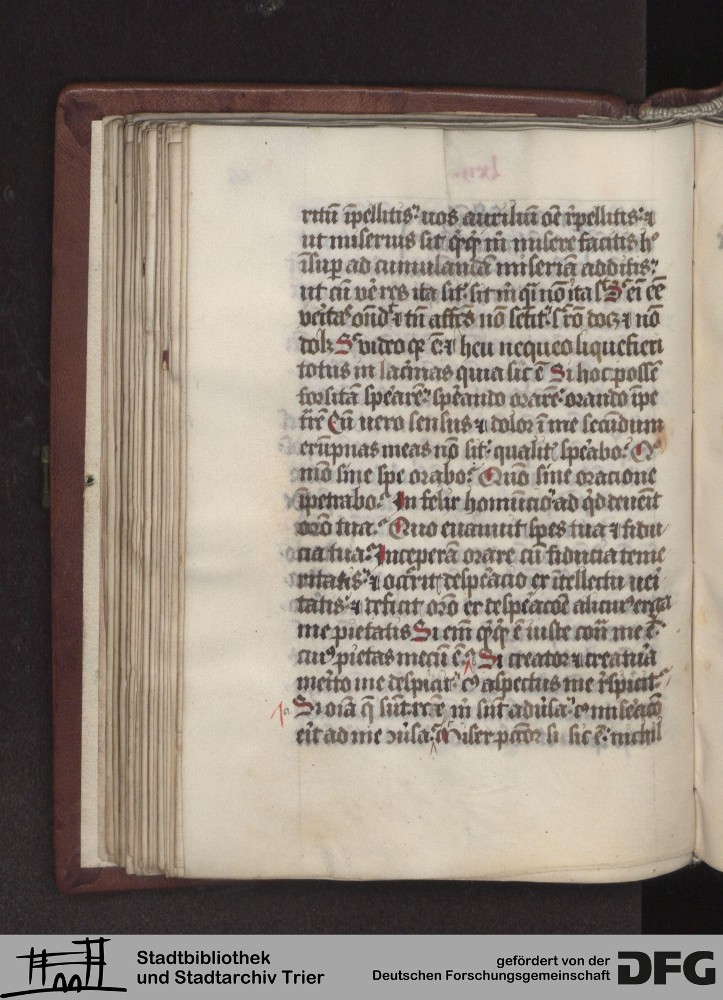 ritū īpellitis: uos auxiliū oē r̄pellitis: ⁊
ut miserius sit q̄q̄ m̄ misere facitis h°
īsup ad cumulandā miseriā additis:
ut cū ve res ita sit: sit m̄ q̄i nō ita S ei eē
veritas ond ⁊ tn̄ affcūs nō sētit: rō docꝫ ⁊ nō
dolꝫ S video ꝙ ē ⁊ heu nequeo liquefieri
totus in lacrimas quia sic ē Si hoc possē
forsitā sperarē: sperando orarē: orando īpe
trarē Cū uero sensus ⁊ dolor ī me secundum
erūpnas meas nō sit: qualit sperabo:
mō sine spe orabo: Quō sine oracione
īpetrabo: In felix homuncio ad qd deuēit
orō tua: Quo euanuit spes tua ⁊ fidu
cia tua: Inceperā orare cū fiducia teme
ritatis: ⁊ ocurrit desperacio ex ītellectu ueri
tatis: ⁊ deficit orō ex desperacōe alicui° erga
me pietatis Si em̄ q̄q̄ ē iuste cont̄ me ē:
cui° pietas mecū ē: Si creator ⁊ creatura
merito me despicit: c° aspectus me r̄spicit:
Si oīa q̄ sūt m̄ sūt aduersa: c° miseracō
erit ad me Miser pctōr si sic ē: nichil
Stadtbibliothek
und Stadtarchiv Trier
gefördert von der
Deutschen Forschungsgemeinschaft
DFG